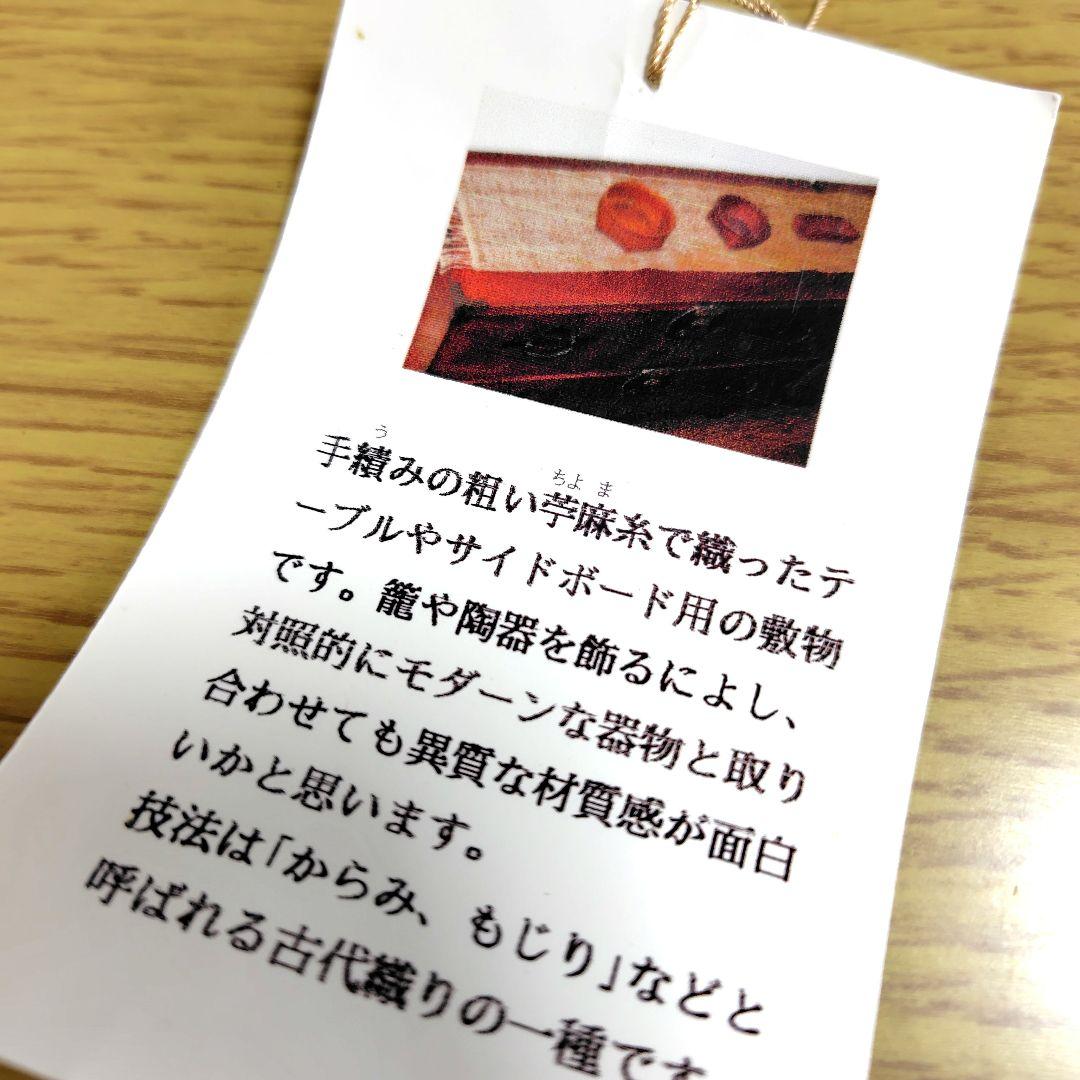 う
ちよま
手績みの粗い苧麻糸で織ったテ
ーブルやサイドボード用の敷物
です。籠や陶器を飾るによし、
対照的にモダーンな器物と取り
合わせても異質な材質感が面白
いかと思います。
技法は「からみ、もじり」などと
呼ばれる古代織りの一種です